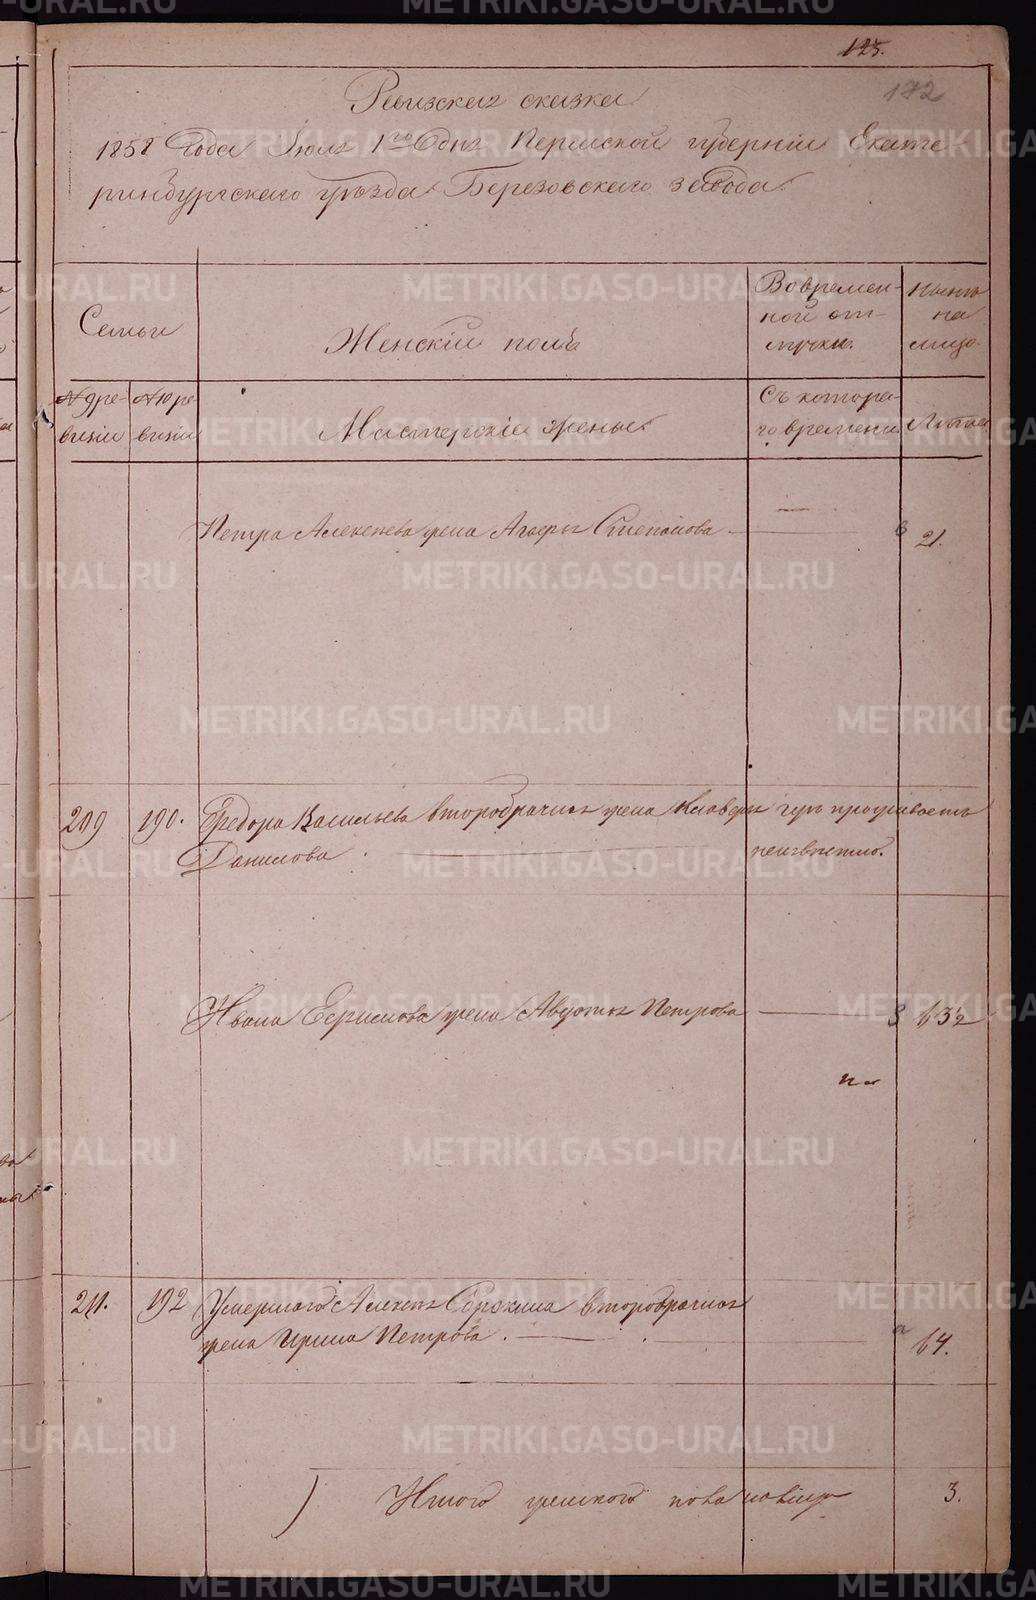 125.
172
Ревизская сказка
1858 года Июля 1го дня Пермской губернiи Екате
ринбургского уѣзда Березовского завода.
Семьи
Женскiй полъ
Во времен-
ной от-
лучки.
Нынѣ
на
лицо
№ 9 ре-
визiи
№ 10 ре-
визiи
Мастерскiе жены.
Съ которо-
го времени
Лѣта
Петра Алексѣева жена Агафья Степанова
6
21.
209
190.
Федора Васильева второбрачная жена Клавдiя
гдѣ проживаетъ
Данилова
неизвѣстно.
Ивана Ефимова жена Авдотья Петрова
3
63½
211.
192
Умершаго Алексѣя Сорокина второбрачная
жена Ирина Петрова.
64.
Итого женского пола на лицо
3.
METRIKI.GASO-URAL.RU